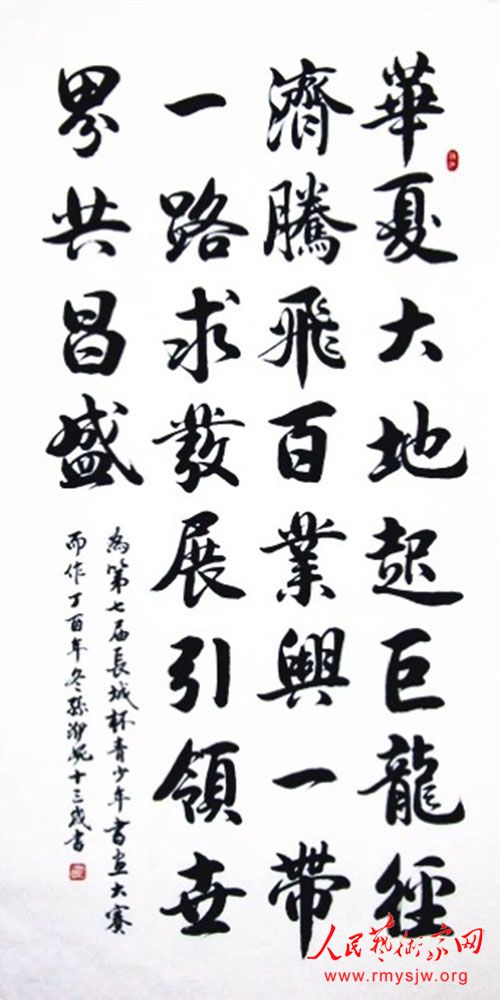 華夏大地起巨龍經
濟騰飛百業興一帶
一路求發展引領世
界共昌盛
為第七届長城杯青少年書畫大賽
而作丁酉年冬孫妮十三歲書
人民藝術家网
www.rmysjw.org